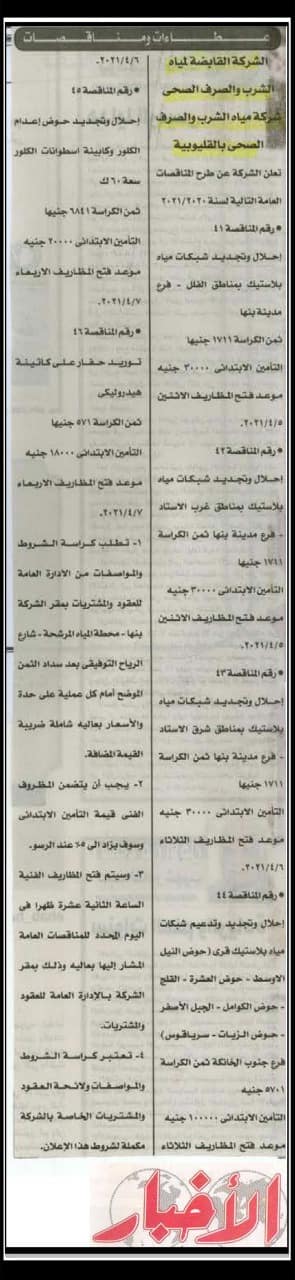 عطاءات ومناقصات
الشركة القابضة لمياه
الشرب والصرف الصحى
شركة مياه الشرب والصرف
الصحى بالقليوبية
تعلن الشركة عن طرح المناقصات
العامة التالية لسنة ٢٠٢١/٢٠٢٠
• رقم المناقصة ٤١
إحلال وتجديد شبكات مياه
بلاستيك بمناطق الفلل - فرع
مدينة بنها
ثمن الكراسة ١٧١١ جنيها
التأمين الابتدائى ٣٠٠٠٠ جنيه
موعد فتح المظاريف الاثنين
٢٠٢١/٤/٥.
• رقم المناقصة ٤٢
إحلال وتجديد شبكات مياه
بلاستيك بمناطق غرب الاستاد
- فرع مدينة بنها ثمن الكراسة
١٧١١ جنيها
التأمين الابتدائى ٣٠٠٠٠ جنيه
موعد فتح المظاريف الاثنين
٢٠٢١/٤/٥.
• رقم المناقصة ٤٣
إحلال وتجديد شبكات مياه
بلاستيك بمناطق شرق الاستاد
- فرع مدينة بنها ثمن الكراسة
١٧١١ جنيها
التأمين الابتدائى ٣٠٠٠٠ جنيه
موعد فتح المظاريف الثلاثاء
٢٠٢١/٤/٦.
• رقم المناقصة ٤٤
إحلال وتجديد وتدعيم شبكات
مياه بلاستيك قرى (حوض النيل
الاوسط - حوض العشرة - القلج
- حوض الكوامل - الجبل الأصفر
- حوض الزيات - سرياقوس)
فرع جنوب الخانكة ثمن الكراسة
٥٧٠١ جنيه
التأمين الابتدائى ١٠٠٠٠٠ جنيه
موعد فتح المظاريف الثلاثاء
٢٠٢١/٤/٦.
• رقم المناقصة ٤٥
إحلال وتجديد حوض إعدام
الكلور وكابينة اسطوانات الكلور
سعة ٦٠ ك
ثمن الكراسة ٦٨٤١ جنيها
التأمين الابتدائى ٢٠٠٠٠ جنيه
موعد فتح المظاريف الاربعاء
٢٠٢١/٤/٧.
• رقم المناقصة ٤٦
توريد حفار على كاتينة
هيدروليكى
ثمن الكراسة ٥٧١ جنيها
التأمين الابتدائى ١٨٠٠٠ جنيه
موعد فتح المظاريف الاربعاء
٢٠٢١/٤/٧
١- تطلب كراسة الشروط
والمواصفات من الادارة العامة
للعقود والمشتريات بمقر الشركة
بنها - محطة المياه المرشحة - شارع
الرياح التوفيقى بعد سداد الثمن
الموضح أمام كل عملية على حدة
والأسعار بعاليه شاملة ضريبة
القيمة المضافة.
٢- يجب أن يتضمن المظروف
الفنى قيمة التأمين الابتدائى
وسوف يزاد الى ٥٪ عند الرسو.
٣- وسيتم فتح المظاريف الفنية
الساعة الثانية عشرة ظهرا فى
اليوم المحدد للمناقصات العامة
المشار إليها بعاليه وذلك بمقر
الشركة بالإدارة العامة للعقود
والمشتريات.
٤- تعتبر كراسة الشروط
والمواصفات ولائحة العقود
والمشتريات الخاصة بالشركة
مكملة لشروط هذا الإعلان.
الأخبار